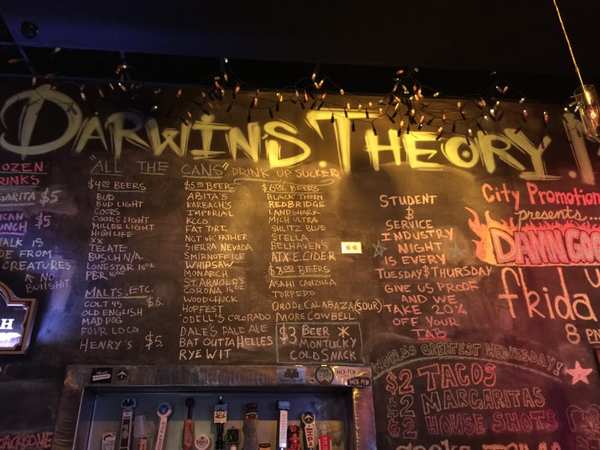 DARWINS. THEORY.
OZEN
RINKS
ARITA $5
ICAN
UNCH $5
HALK IS
DE FROM
CREATURES
NO
BULLSHIT
"ALL THE CANS" DRINK UP SUCKER
$4.00 BEERS
BUD
BUD LIGHT
COORS
COORS LIGHT
MILLER LIGHT
HIGH LIFE
XX
TECATE
BUSCH N/A
LONESTAR 16OZ
PBR 16OZ
MALTS, ETC.
COLT 45 $6.
OLD ENGLISH
MAD DOG
FOUR LOCO
HENRY'S $5.
$5.00 BEERS
ABITA'S
KARBACHS
IMPERIAL
FAT TIRE
NOT UR FATHER
SIERRA NEVADA
SMIRNOFF ICE
WHIPSAW
MONARCH
ST. ARNOLD'S
CORONA
WOODCHUCK
HOPFEST
ODELL'S COLORADO
DALE'S PALE ALE
BAT OUTTA HELLES
RYE WIT
BEERS
BLACK THORN
REDBRIDGE
LANDSHARK
MICH ULTRA
SHLITZ BLUE
STELLA
BELHAVEN
ATX CIDER
BEERS
ASAHI
TORPEDO
ORO DE CALABAZA (SOUR)
MORE COWBELL
$3 BEER *
MONTUCKY
COLD SNACK
STUDENT
&
SERVICE
INDUSTRY
NIGHT
IS EVERY
TUESDAY & THURSDAY
GIVE US PROOF
AND WE
TAKE 20%
OFF YOUR
TAB
City Promotion
presents...
DAMN GOO
fkida
8 PM
GREATEST WEDNESDAY!
$2 TACOS
$2 MARGARITAS
$2 HOUSE SHOTS